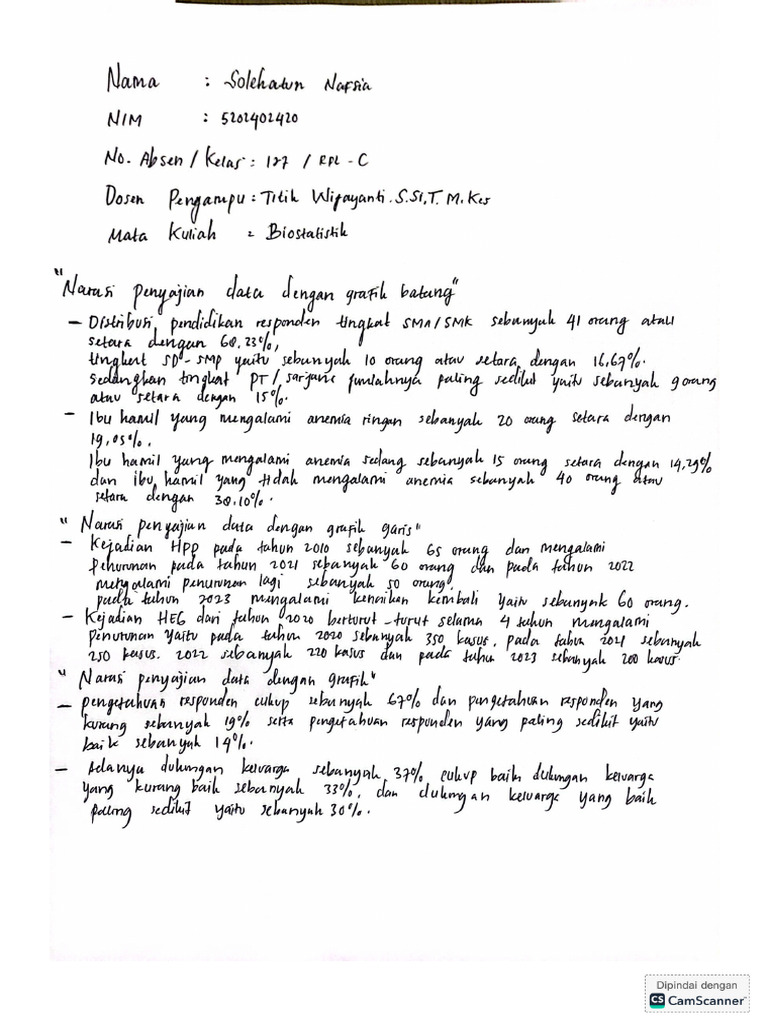 Nama : Solehatun Nafsia
NIM : 5202402420
No. Absen / Kelas : 127 / RPL - C
Dosen Pengampu : Titik Wijayanti. S.Si,T. M.Kes
Mata Kuliah : Biostatistik
"Narasi penyajian data dengan grafik batang"
- Distribusi pendidikan responden tingkat SMA/SMK sebanyak 41 orang atau
setara dengan 68,33%,
tingkat SD - SMP yaitu sebanyak 10 orang atau setara dengan 16,67%.
sedangkan tingkat PT/sarjana jumlahnya paling sedikit yaitu sebanyak 9 orang
atau setara dengan 15%.
- Ibu hamil yang mengalami anemia ringan sebanyak 20 orang setara dengan
19,05%.
Ibu hamil yang mengalami anemia sedang sebanyak 15 orang setara dengan 14,29%
dan ibu hamil yang tidak mengalami anemia sebanyak 40 orang atau
setara dengan 38,10%.
"Narasi penyajian data dengan grafik garis"
- Kejadian HPP pada tahun 2010 sebanyak 65 orang dan mengalami
Penurunan pada tahun 2021 sebanyak 60 orang dan pada tahun 2022
mengalami penurunan lagi sebanyak 50 orang.
pada tahun 2023 mengalami kenaikan kembali yaitu sebanyak 60 orang.
- Kejadian HEG dari tahun 2020 berturut - turut selama 4 tahun mengalami
penurunan yaitu pada tahun 2020 sebanyak 350 kasus, pada tahun 2021 sebanyak
250 kasus. 2022 sebanyak 220 kasus dan pada tahun 2023 sebanyak 200 kasus.
"Narasi penyajian data dengan grafik"
- pengetahuan responden cukup sebanyak 67% dan pengetahuan responden yang
kurang sebanyak 19% serta pengetahuan responden yang paling sedikit yaitu
baik sebanyak 14%.
- Adanya dukungan keluarga sebanyak 37% cukup baik dukungan keluarga
yang kurang baik sebanyak 33%, dan dukungan keluarga yang baik
paling sedikit yaitu sebanyak 30%.
Dipindai dengan
CS CamScanner